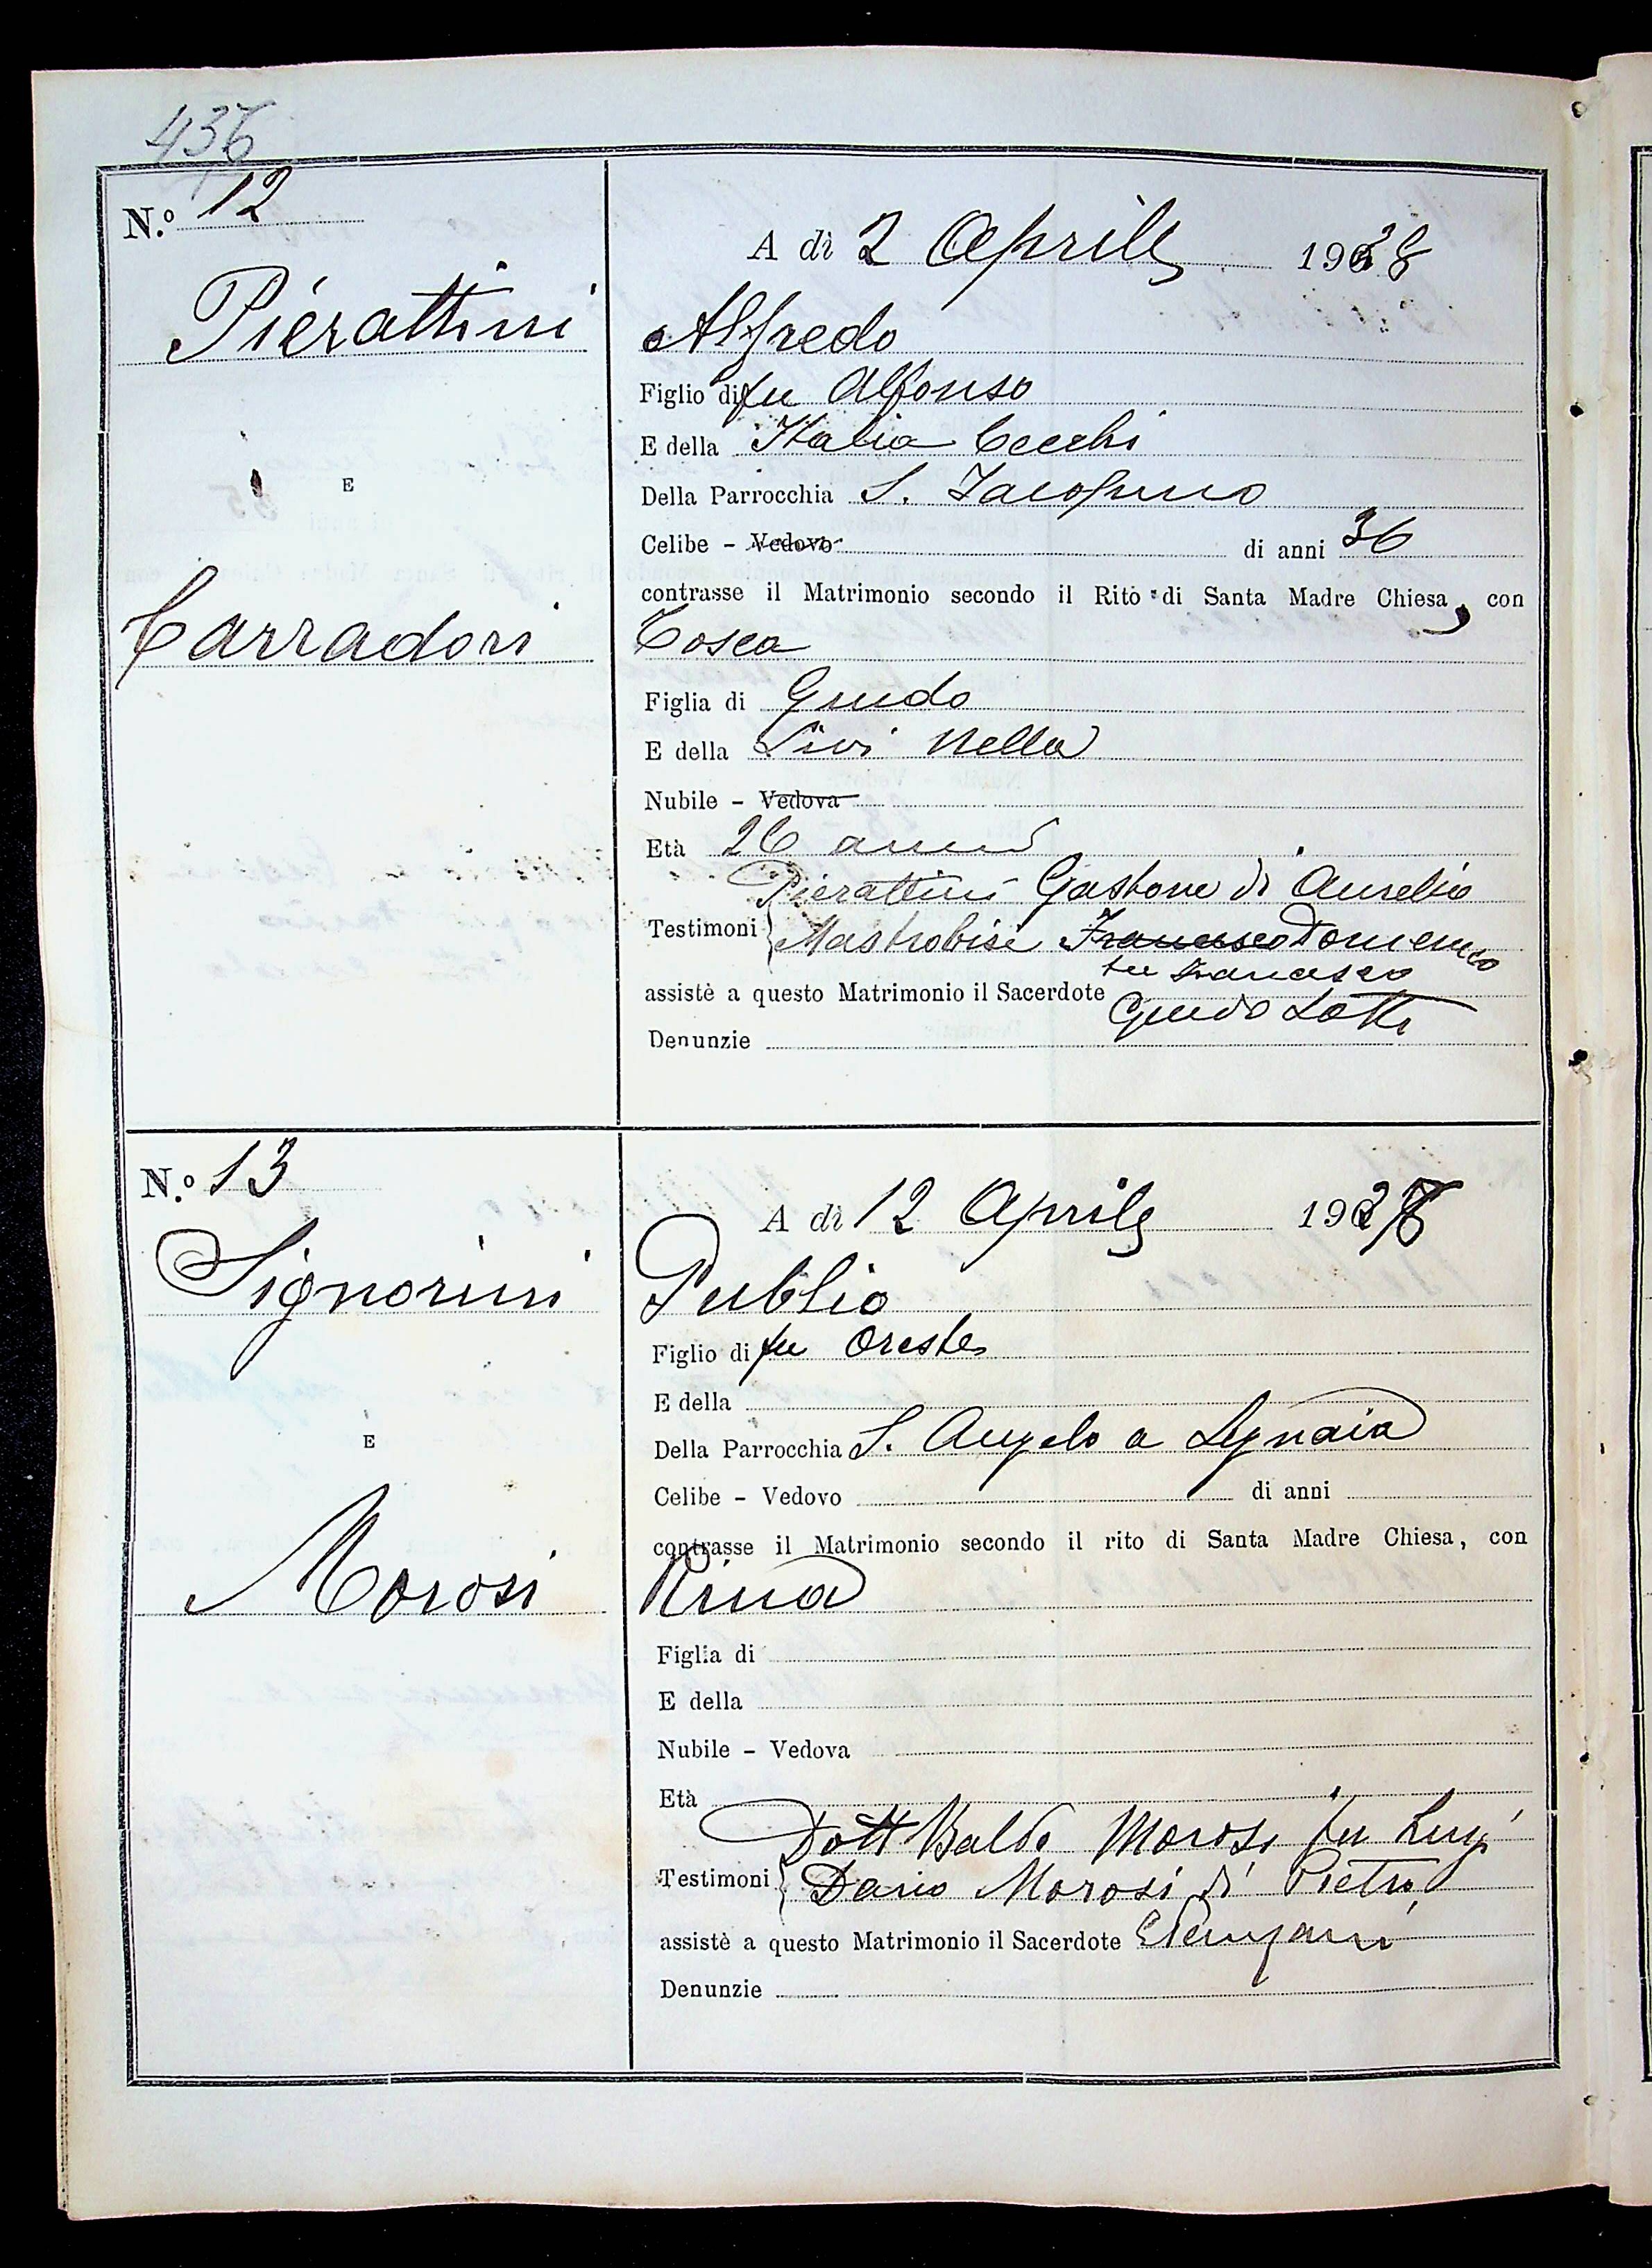 436
N.º 12
A dì 2 Aprile 1938
Pierattini
Alfredo
Figlio di fu Alfonso
E della Italia Cecchi
Della Parrocchia S. Iacopino
E
Celibe - Vedovo di anni 36
contrasse il Matrimonio secondo il Rito di Santa Madre Chiesa, con
Carradori
Tosca
Figlia di Guido
E della Livi Nella
Nubile - Vedova
Età 26 anni
Pierattini Gastone di Aurelio
Testimoni Mastrobisi Francesco Domenico
fu Francesco
assistè a questo Matrimonio il Sacerdote Guido Lotti
Denunzie
N.º 13
A dì 12 Aprile 1938
Signorini
Publio
Figlio di fu Oreste
E della
E
Della Parrocchia S. Angelo a Legnaia
Celibe - Vedovo di anni
contrasse il Matrimonio secondo il rito di Santa Madre Chiesa, con
Morosi
Rina
Figlia di
E della
Nubile - Vedova
Età
Dott Baldo Morosi fu Luigi
Testimoni Dario Morosi di Pietro
assistè a questo Matrimonio il Sacerdote
Denunzie